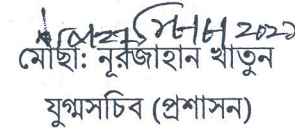 মোছা: নূরজাহান খাতুন
যুগ্মসচিব (প্রশাসন)